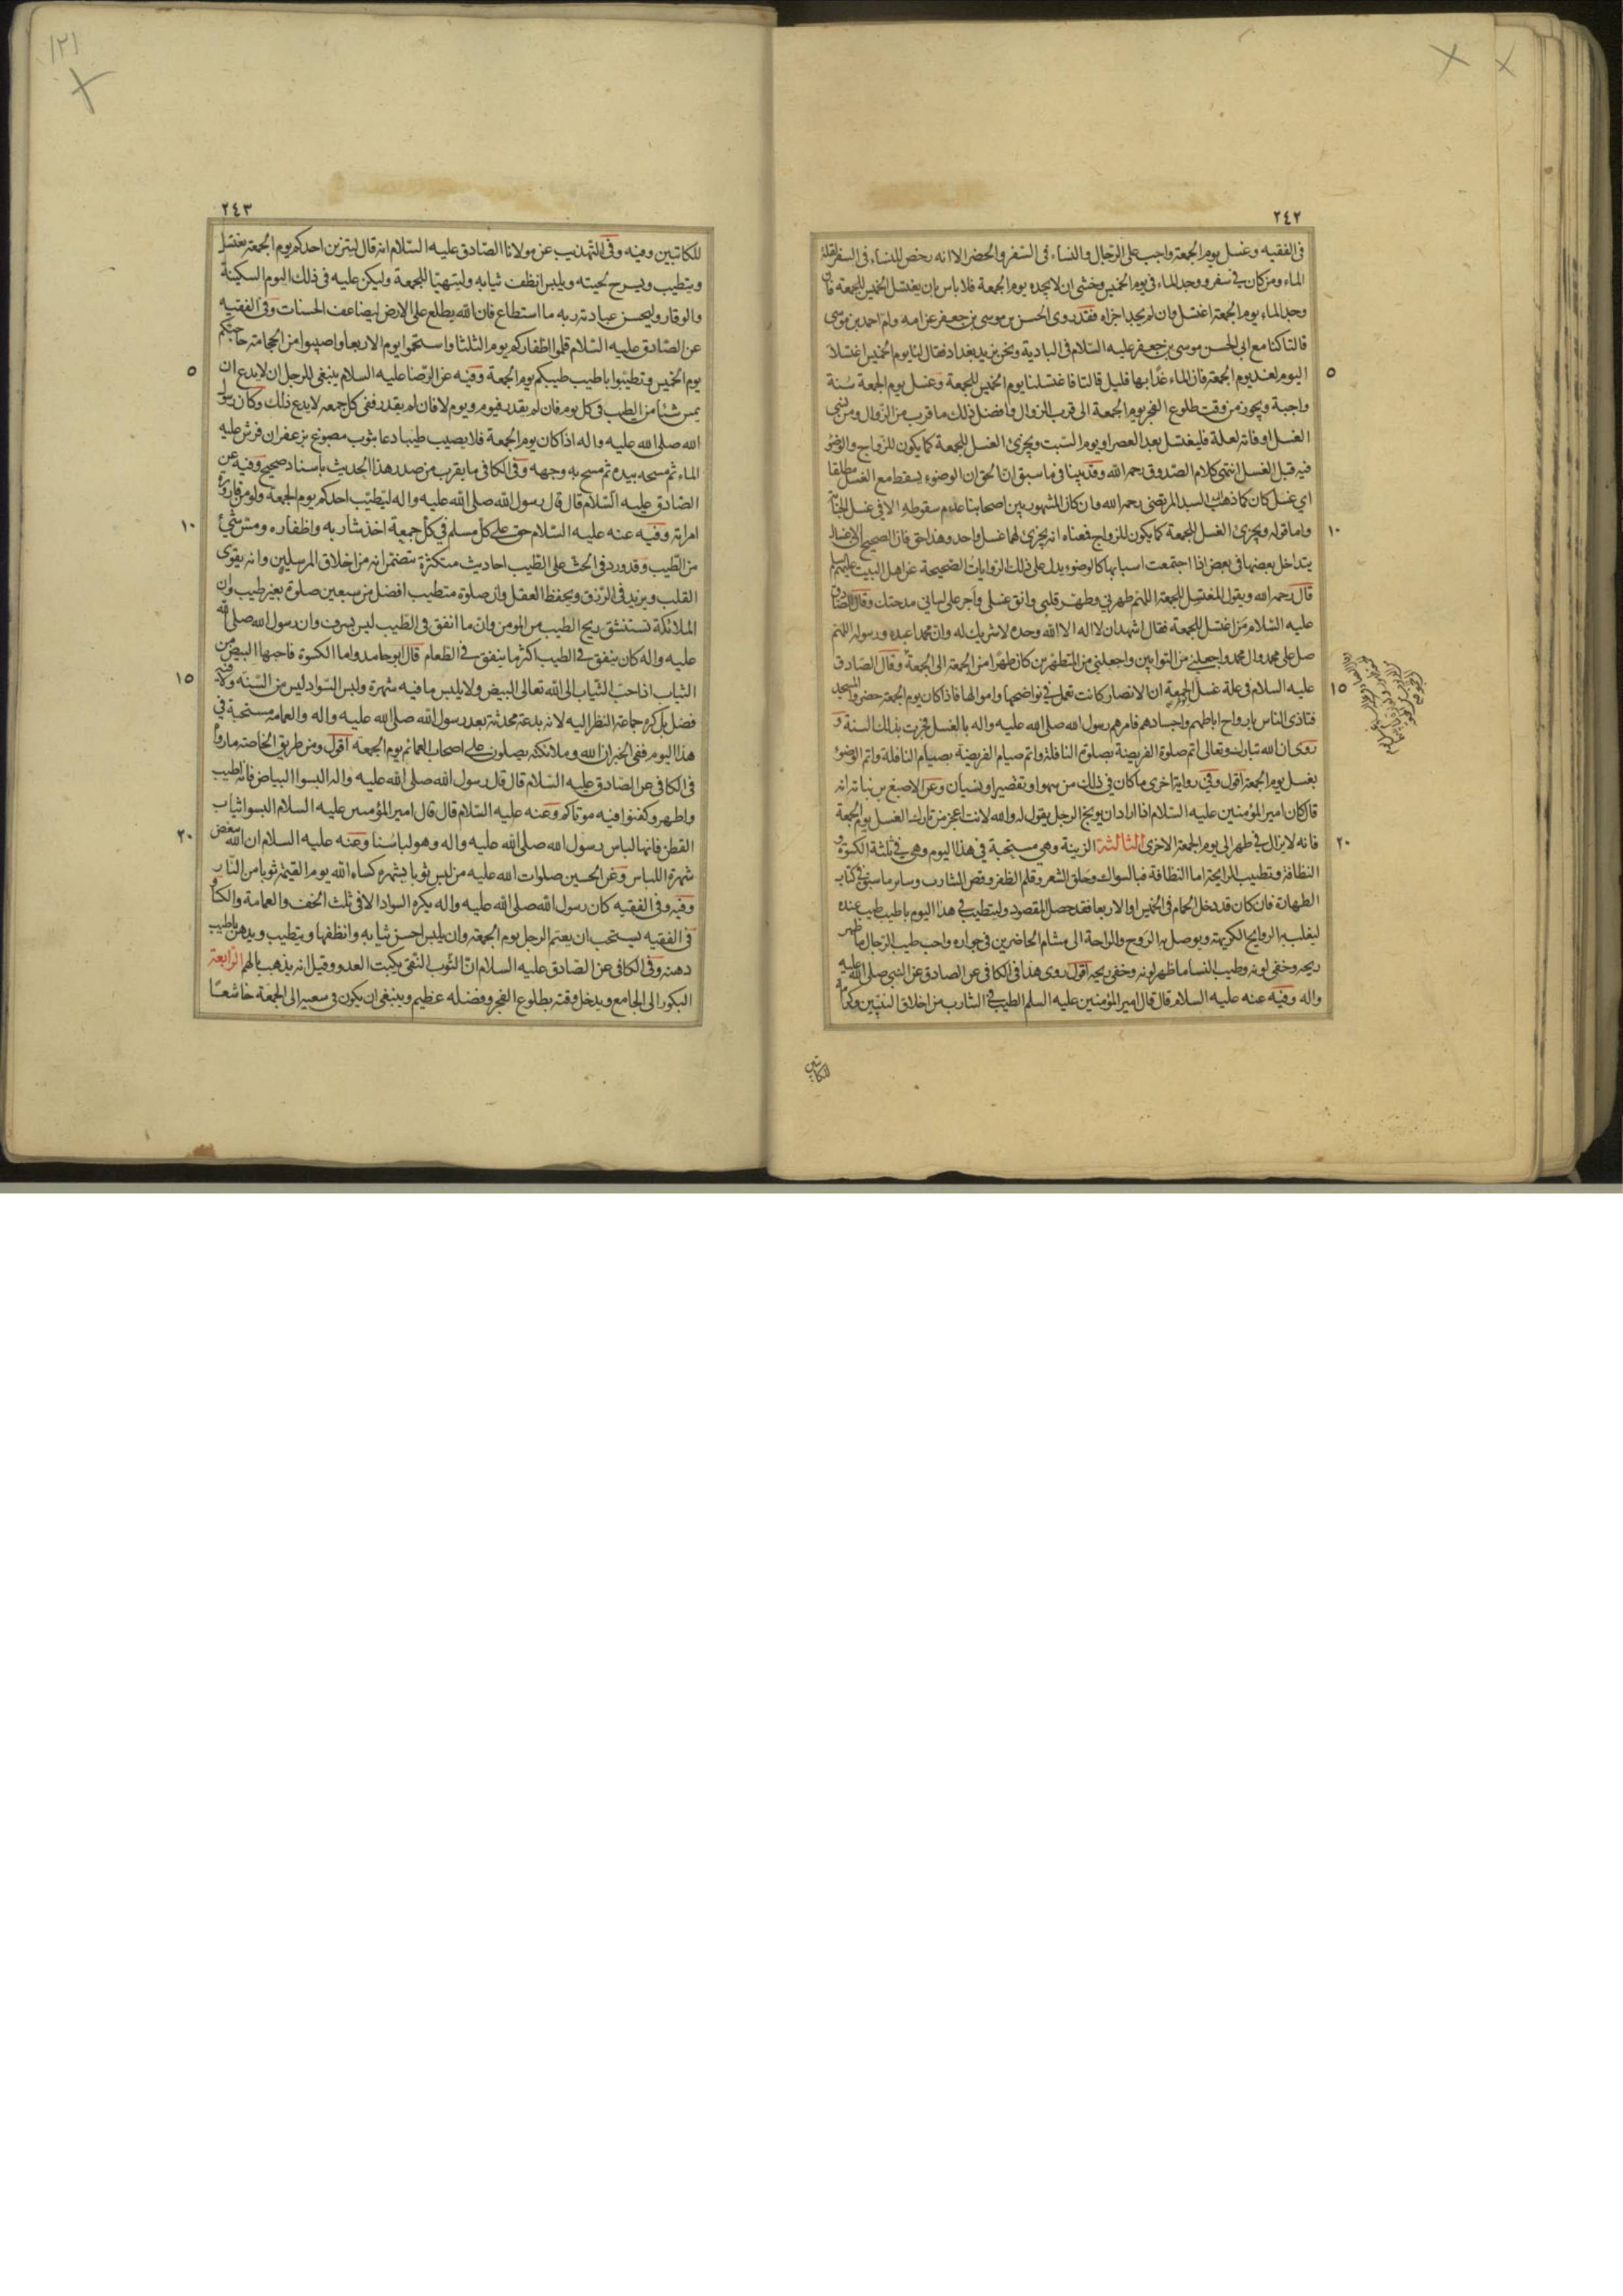 ٢٤٢
فى الفقيه وغسل يوم الجمعة واجب على الرجال والنساء فى السفر والحضر الا انه رخص للنساء فى السفر لقلة
الماء ومن كان فى سفر ووجد الماء فى يوم الخميس وخشى ان لا يجده يوم الجمعة فلا باس بان يغتسل الخميس للجمعة فان
وجد الماء يوم الجمعة اغتسل وان لم يجد اجزاه فقد روى الحسن بن موسى بن جعفر عن امه وام احمد بن موسى
قالتا كنا مع ابى الحسن موسى بن جعفر عليه السلام فى البادية ونحن نريد بغداد فقال لنا يوم الخميس اغتسلا
٥
اليوم لغد يوم الجمعة فان الماء غدًا بها قليل قالتا فاغتسلنا يوم الخميس للجمعة وغسل يوم الجمعة سنة
واجبة ويجوز من وقت طلوع الفجر يوم الجمعة الى قرب الزوال وافضل ذلك ما قرب من الزوال ومن نسى
الغسل او فاته لعلة فليغتسل بعد العصر او يوم السبت ويجزئ الغسل للجمعة كما يكون للزواج والوضوء
فيه قبل الغسل انتهى كلام الصدوق رحمه الله وقد بينا فى ما سبق ان الحق ان الوضوء يسقط مع الغسل مطلقا
اى غسل كان كما ذهب اليه السيد المرتضى رحمه الله وان كان المشهور بين اصحابنا عدم سقوطه الا فى غسل الجنابة
١٠
واما قوله ويجزئ الغسل للجمعة كما يكون للزواج فمعناه انه يجزئ لهما غسل واحد وهذا حق فان الصحيح ان الاغسال
يتداخل بعضها فى بعض اذا اجتمعت اسبابها كالوضوء يدل على ذلك الروايات الصحيحة عن اهل البيت عليهم السلم
قال رحمه الله ويقول المغتسل للجمعة اللهم طهرنى وطهر قلبى وانق غسلى واجر على لسانى مدحتك وقال الصادق
عليه السلام من اغتسل للجمعة فقال اشهد ان لا اله الا الله وحده لا شريك له وان محمدا عبده ورسوله اللهم
صل على محمد وال محمد واجعلنى من التوابين واجعلنى من المتطهرين كان طهرًا من الجمعة الى الجمعة وقال الصادق
١٥
عليه السلام فى علة غسل الجمعة ان الانصار كانت تعمل فى نواضحها واموالها فاذا كان يوم الجمعة حضروا المسجد
فتاذى الناس بارواح اباطهم واجسادهم فامرهم رسول الله صلى الله عليه واله بالغسل فجرت بذلك السنة و
روى ان الله تبارك وتعالى اتم صلوة الفريضة بصلوة النافلة واتم صيام الفريضة بصيام النافلة واتم الوضوء
بغسل يوم الجمعة اقول وفى رواية اخرى ما كان فى ذلك من سهو او تقصير او نسيان وعن الاصبغ بن نباته انه
قال كان امير المؤمنين عليه السلام اذا اراد ان يوبخ الرجل يقول له والله لانت اعجز من تارك الغسل يوم الجمعة
٢٠
فانه لا يزال فى طهر الى يوم الجمعة الاخرى الثالثة الزينة وهى مستحبة فى هذا اليوم وهى فى ثلثة الكسوة و
النظافة وتطييب الرايحة اما النظافة فبالسواك وحلق الشعر وقلم الظفر وقص الشارب وساير ما سبق فى كتاب
الطهارة فان كان قد دخل الحمام فى الخميس او الاربعا فقد حصل المقصود وليتطيب فى هذا اليوم باطيب طيب عنده
ليغلب بها الروايح الكريهة ويوصل بها الروح والراحة الى مشام الحاضرين فى جواره واحب طيب الرجال ما ظهر
ريحه وخفى لونه وطيب النسا ما ظهر لونه وخفى ريحه اقول روى هذا فى الكافى عن الصادق عن النبى صلى الله عليه
واله وفيه عنه عليه السلام قال قال امير المؤمنين عليه السلم الطيب فى الشارب من اخلاق النبيين وكرامة
للكاتبين
٢٤٣
للكاتبين وفيه وفى التهذيب عن مولانا الصادق عليه السلام انه قال ليتزين احدكم يوم الجمعة يغتسل
ويتطيب ويسرح لحيته ويلبس انظف ثيابه وليتهيا للجمعة وليكن عليه فى ذلك اليوم السكينة
والوقار وليحسن عبادة ربه ما استطاع فان الله يطلع على الارض ليضاعف الحسنات وفى الفقيه
عن الصادق عليه السلام قلموا اظفاركم يوم الثلثا واستحموا يوم الاربعا واصيبوا من الحجامة حاجتكم
٥
يوم الخميس وتطيبوا باطيب طيبكم يوم الجمعة وفيه عن الرضا عليه السلام ينبغى للرجل ان لا يدع ان
يمس شيئا من الطيب فى كل يوم فان لم يقدر فيوم ويوم لا فان لم يقدر ففى كل جمعه لا يدع ذلك وكان رسول
الله صلى الله عليه واله اذا كان يوم الجمعة فلا يصيب طيبا دعا بثوب مصبوغ بزعفران فرش عليه
الماء ثم مسحه بيده ثم مسح به وجهه وفى الكافى ما يقرب من صدر هذا الحديث باسناد صحيح وفيه عن
الصادق عليه السلام قال قال رسول الله صلى الله عليه واله ليتطيب احدكم يوم الجمعة ولو من قارورة
١٠
امراته وفيه عنه عليه السلام حق على كل مسلم فى كل جمعة اخذ شاربه واظفاره ومس شئ
من الطيب وقد ورد فى الحث على الطيب احاديث متكثرة تتضمن انه من اخلاق المرسلين وانه يقوى
القلب ويزيد فى الرزق ويحفظ العقل وان صلوة متطيب افضل من سبعين صلوة بغير طيب وان
الملائكة تستنشق ريح الطيب من المومن وان ما انفق فى الطيب ليس بسرف وان رسول الله صلى الله
عليه واله كان ينفق فى الطيب اكثر ما ينفق فى الطعام قال ابو حامد واما الكسوة فاحبها البيض من
١٥
الثياب اذ احب الثياب الى الله تعالى البيض ولا يلبس ما فيه شهرة ولبس السواد ليس من السنة ولا فيه
فضل بل كره جماعة النظر اليه لانه بدعة محدثة بعد رسول الله صلى الله عليه واله والعمامة مستحبة فى
هذا اليوم ففى الخبر ان الله وملائكته يصلون على اصحاب العمائم يوم الجمعة اقول ومن طريق الخاصة ما رواه
فى الكافى عن الصادق عليه السلام قال قال رسول الله صلى الله عليه واله البسوا البياض فانه اطيب
واطهر وكفنوا فيه موتاكم وعنه عليه السلام قال قال امير المؤمنين عليه السلام البسوا ثياب
٢٠
القطن فانها لباس رسول الله صلى الله عليه واله وهو لباسنا وعنه عليه السلام ان الله يبغض
شهرة اللباس وعن الحسين صلوات الله عليه من لبس ثوبا يشهره كساه الله يوم القيمة ثوبا من النار
وفيه وفى الفقيه كان رسول الله صلى الله عليه واله يكره السواد الا فى ثلث الخف والعمامة والكسا و
فى الفقيه يستحب ان يعتم الرجل يوم الجمعة وان يلبس احسن ثيابه وانظفها ويتطيب ويدهن باطيب
دهنه وفى الكافى عن الصادق عليه السلام ان الثوب النقى يكبت العدو وقيل انه يذهب بالهم الرابعة
البكور الى الجامع ويدخل وقته بطلوع الفجر وفضله عظيم وينبغى ان يكون فى سعيه الى الجمعة خاشعًا